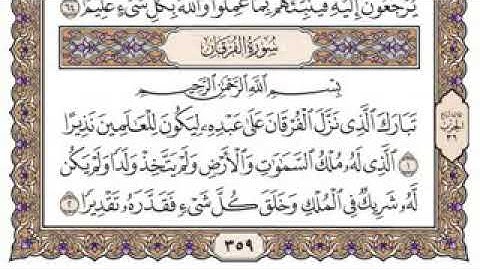 يُرْجَعُونَ إِلَيْهِ فَيُنَبِّئُهُم بِمَا عَمِلُوا۟ وَٱللَّهُ بِكُلِّ شَىْءٍ عَلِيمٌۢ ۝٦٤
سُورَةُ الْفُرْقَانِ
بِسْمِ ٱللَّهِ ٱلرَّحْمَٰنِ ٱلرَّحِيمِ
تَبَارَكَ ٱلَّذِى نَزَّلَ ٱلْفُرْقَانَ عَلَىٰ عَبْدِهِۦ لِيَكُونَ لِلْعَٰلَمِينَ نَذِيرًا
۝١ ٱلَّذِى لَهُۥ مُلْكُ ٱلسَّمَٰوَٰتِ وَٱلْأَرْضِ وَلَمْ يَتَّخِذْ وَلَدًا وَلَمْ يَكُن
لَّهُۥ شَرِيكٌ فِى ٱلْمُلْكِ وَخَلَقَ كُلَّ شَىْءٍ فَقَدَّرَهُۥ تَقْدِيرًا ۝٢
الحزب
٣٦
٣٥٩